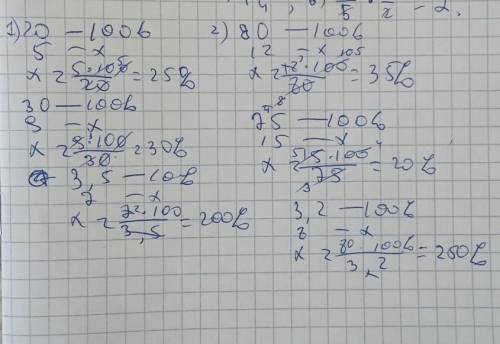 1) 20 — 100%
5 — x
x = 5·100/20 = 25%
30 — 100%
9 — x
x = 9·100/30 = 30%
3,5 — 10%
7 — x
x = 7·100/3,5 = 200%
2) 80 — 100%
12 — x
= 35%
75 — 100%
15 — x
x = 15·100/75 = 20%
3,2 — 100%
8 — x
x = 80·100%/3,2 = 250%